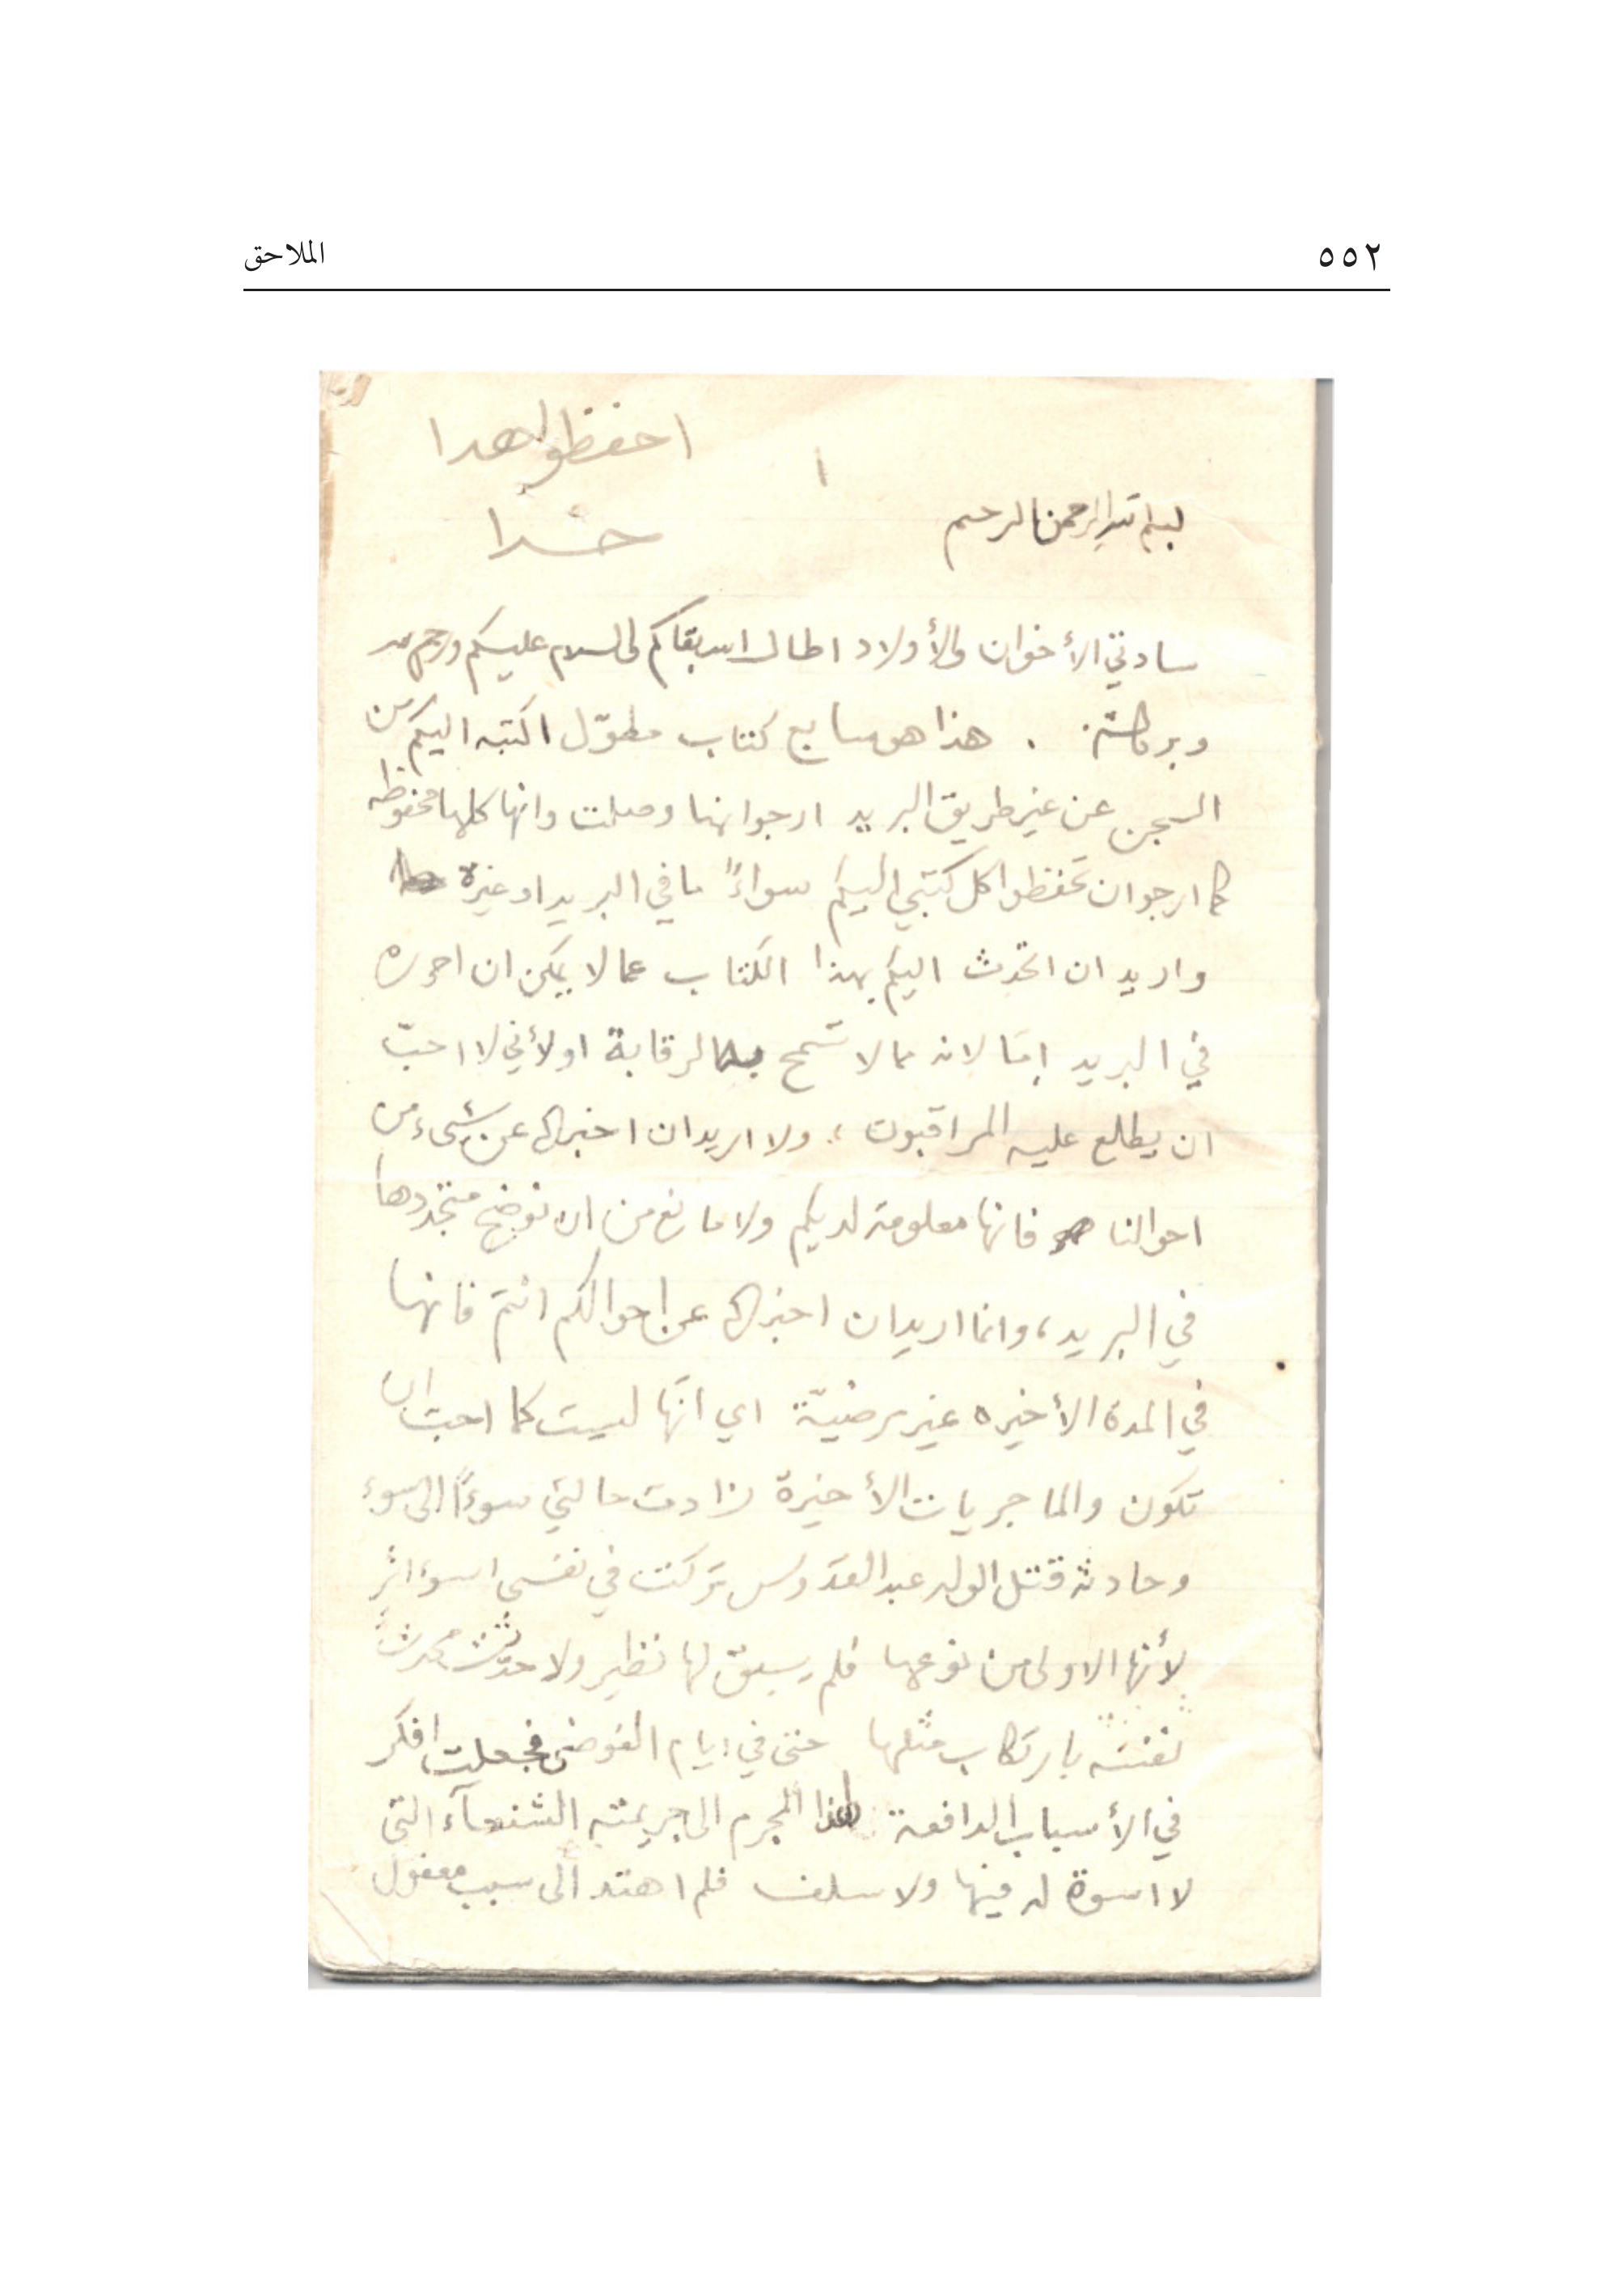 ٥٥٢
الملاحق
احفظوا هذا
جدا
١
بسم الله الرحمن الرحيم
سادتي الأخوان والأولاد اطال الله بقاكم والسلام عليكم ورحمة الله
وبركاته . هذا هو سابع كتاب مطوّل اكتبه اليكم من
السجن عن غير طريق البريد ارجو انها وصلت وانها كلها محفوظه
كما ارجو ان تحفظوا كل كتبي اليكم سواءً ما في البريد او غيره
واريد ان اتحدث اليكم بهذا الكتاب عما لا يمكن ان احرره
في البريد إمّا لانه مما لا تسمح به الرقابة او لأني لا احبّ
ان يطلع عليه المراقبون ، ولا اريد ان اخبركم عن شيء من
احوالنا فانها معلومة لديكم ولا مانع من ان نوضح متجددها
في البريد، وانما اريد ان اخبركم عن احوالكم انتم فانها
في المدة الأخيره غير مرضيّة اي انّها ليست كما احبّ ان
تكون والماجريات الأخيرة زادت حالتي سوءًا الى سوء
وحادثة قتل الولد عبد القدّوس تركت في نفسي اسوء اثر
لأنها الاولى من نوعها فلم يسبق لها نظير ولا حدّثت محدثًا
نفسه بارتكاب مثلها حتى في ايام الفوضى فجعلت افكر
في الأسباب الدافعة لهذا المجرم الى جريمته الشنعآء التي
لا اسوة له فيها ولا سلف فلم اهتد الى سبب معقول